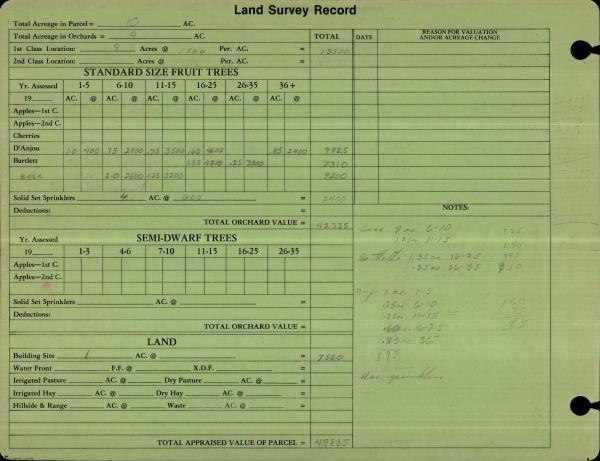 Land Survey Record
Total Acreage in Parcel = 10 AC.
Total Acreage in Orchards = 9 AC. TOTAL DATE REASON FOR VALUATION AND/OR ACREAGE CHANGE
1st Class Location: 9 Acres @ 1500 Per. AC. = 13500
2nd Class Location: Acres @ Per. AC. =
STANDARD SIZE FRUIT TREES
Yr. Assessed 1-5 6-10 11-15 16-25 26-35 36+
19 AC. @ AC. @ AC. @ AC. @ AC. @ AC. @
Apples—1st C.
Apples—2nd C.
Cherries
D'Anjou 1.0 400 .75 2800 .75 3500 .60 4600 .85 2400 7925
Bartlett 1.35 4800 .25 3200 7310
Bosc 2.0 2600 1.25 3200 9200
Solid Set Sprinklers 4 AC. @ 600 = 2400
Deductions: =
TOTAL ORCHARD VALUE = 42335
NOTES:
Bosc 2 ac 6-10
1.25 ac 11-15
1.35 ac 16-25
.25 ac 26-35
6-10
11-15
.60 ac 16-25
.85 ac 36
3.95
4 ac sprinklers
Yr. Assessed SEMI-DWARF TREES
19 1-3 4-6 7-10 11-15 16-25 26-35
AC. @ AC. @ AC. @ AC. @ AC. @ AC. @
Apples—1st C.
Apples—2nd C.
Solid Set Sprinklers AC. @ =
Deductions: =
TOTAL ORCHARD VALUE =
LAND
Building Site 1 AC. @ = 7500
Water Front F.F. @ X.D.F. =
Irrigated Pasture AC. @ Dry Pasture AC. @ =
Irrigated Hay AC. @ Dry Hay AC. @ =
Hillside & Range AC. @ Waste AC. @ =
TOTAL APPRAISED VALUE OF PARCEL = 49835